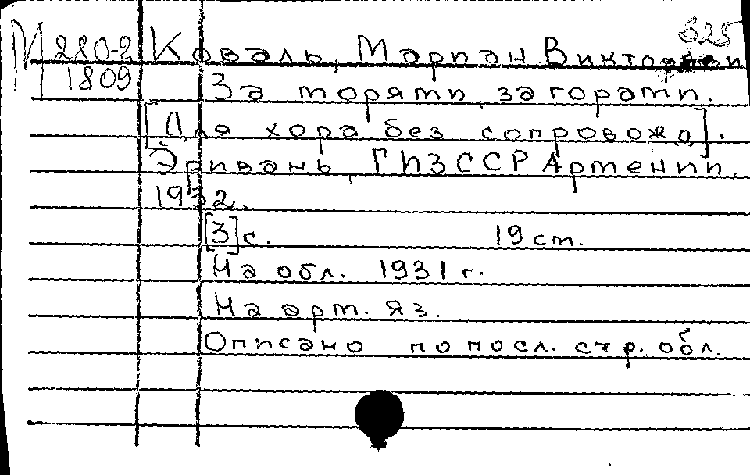 625
М 280-2 Коваль, Мариан Викторович
1809 За морями, за горами.
[Для хора без сопровожд].
Эривань, ГИЗ ССР Армении.
1932.
[3] с. 19 см.
На обл. 1931 г.
На арм. яз.
Описано по посл. стр. обл.